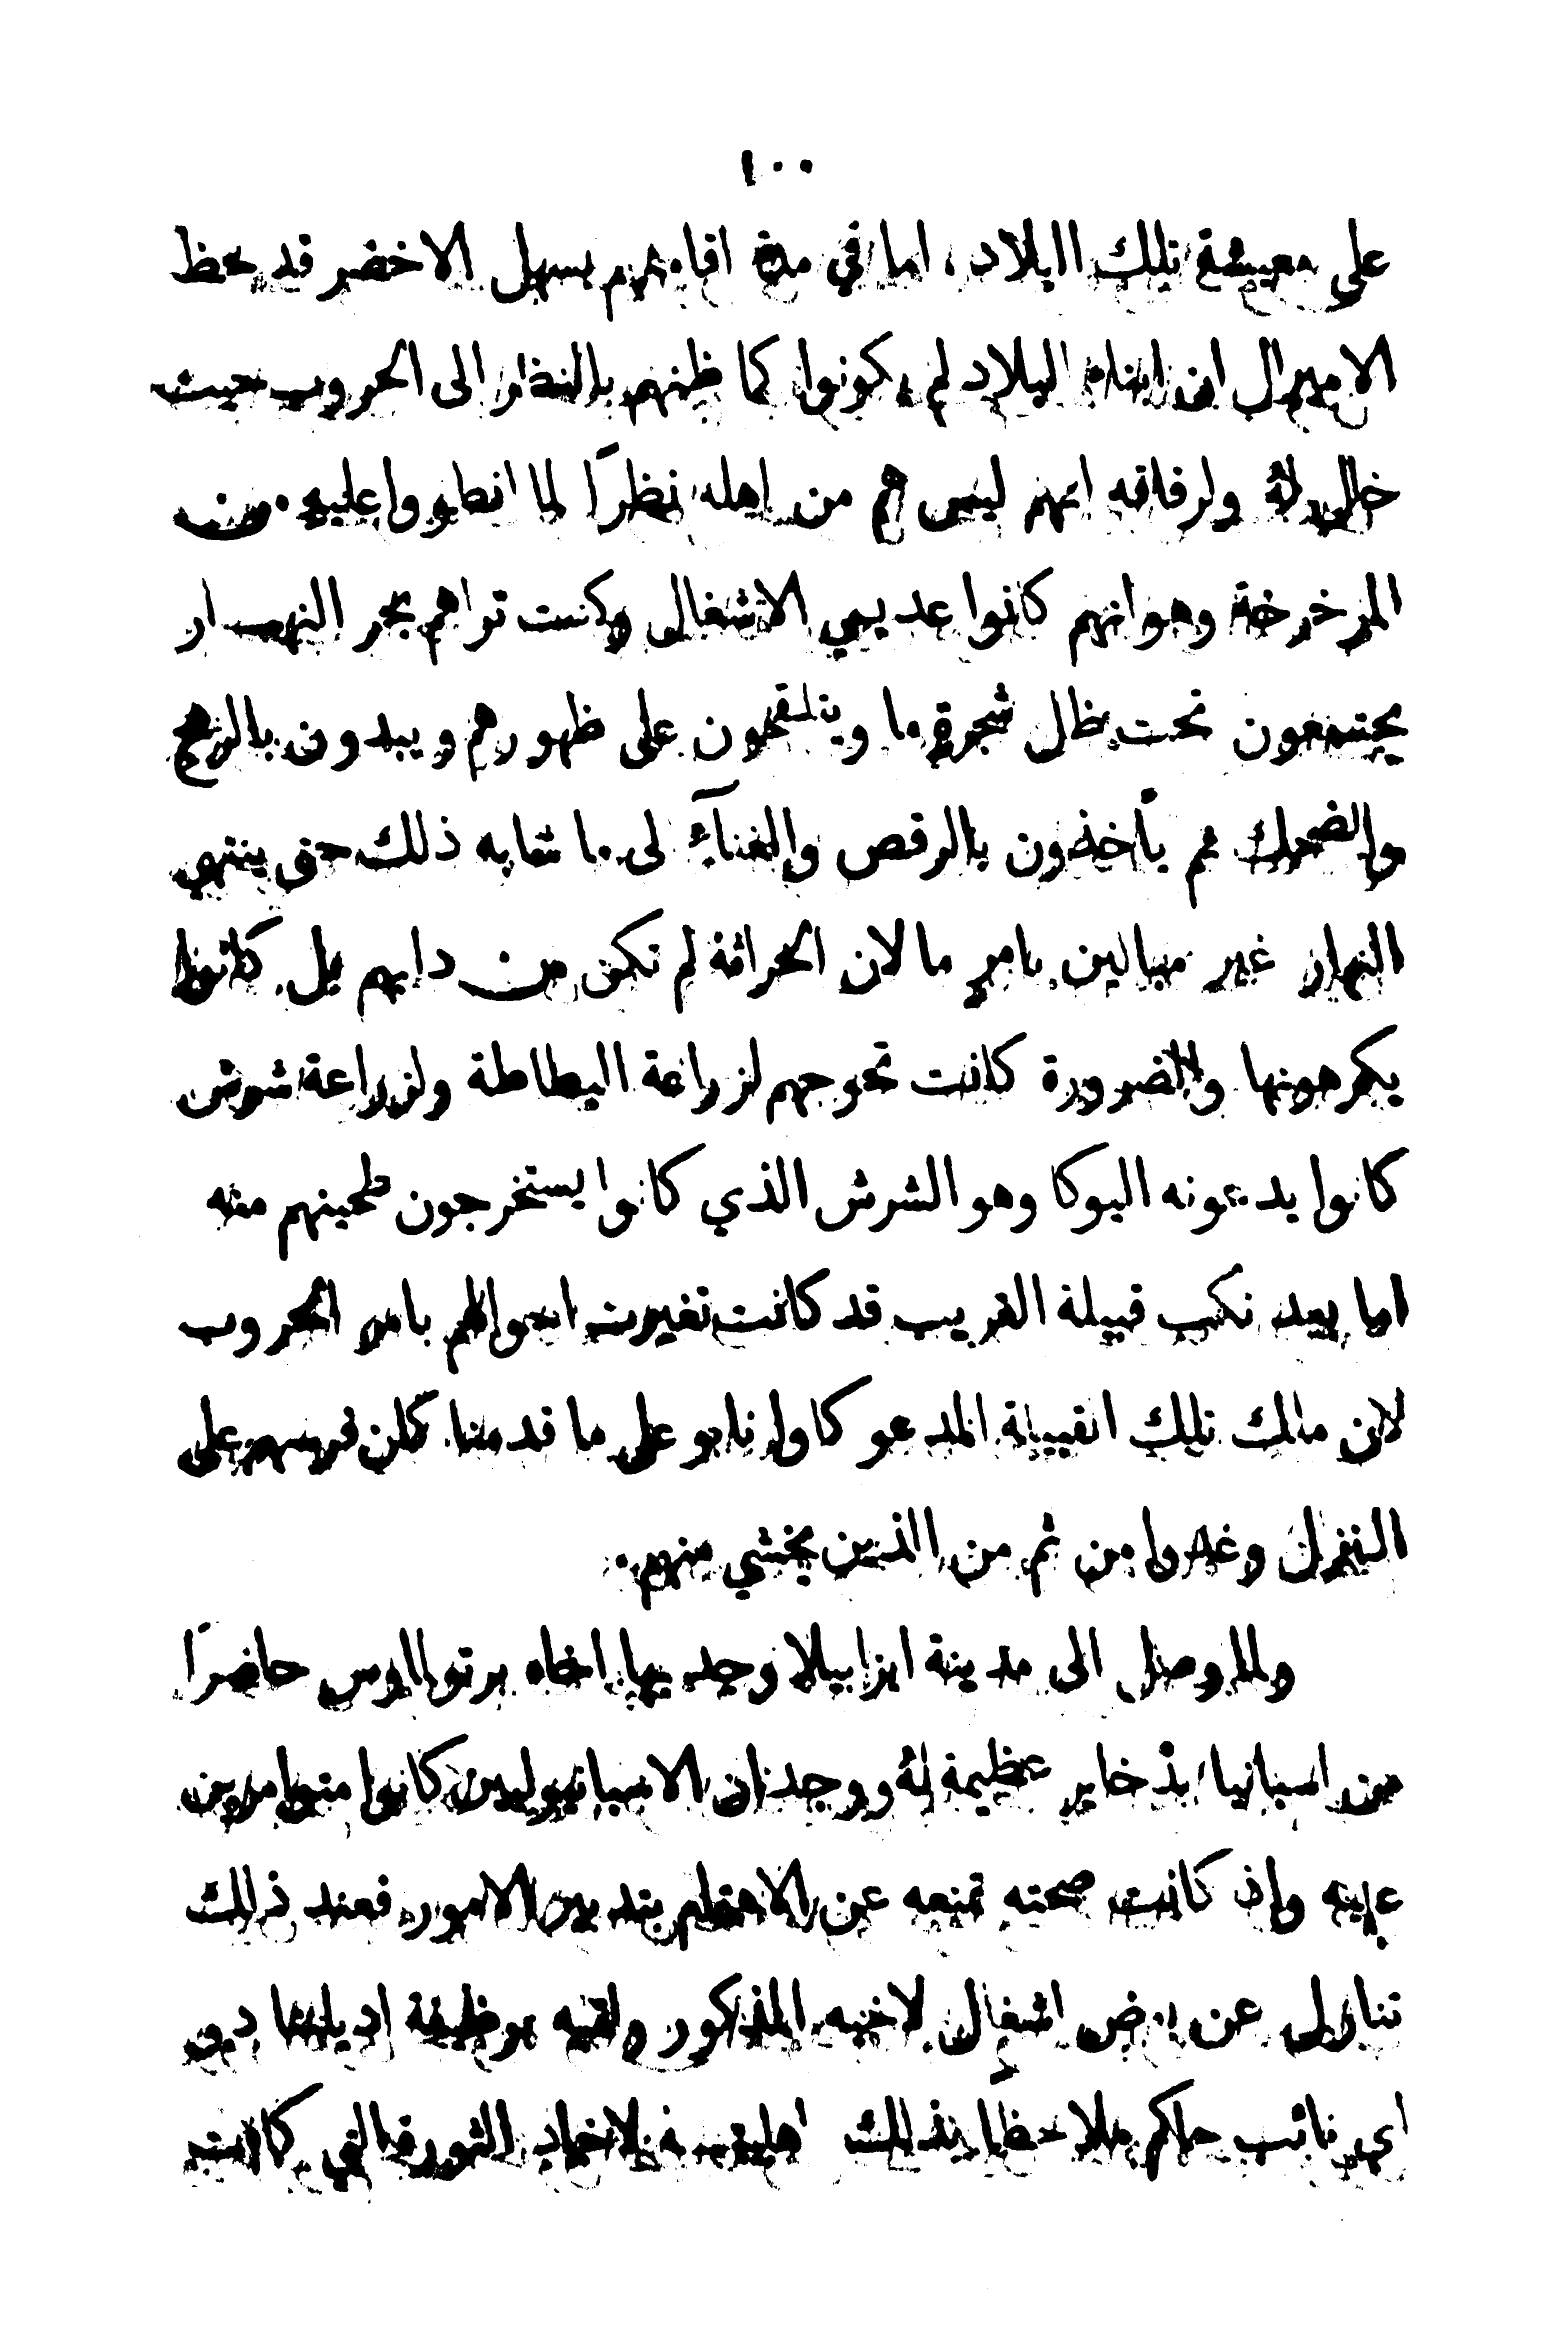 ١٠٠
على معيشة تلك البلاد، اما في مدة اقامتهم بسهل الاخضر قد لحظ
الاميرال ان ابناء البلاد لم يكونوا كما ظنهم بالنظر الى الحروب حيث
خال له ولرفاقه انهم ليس هم من اهله نظرًا لما انطووا عليه من
المرخرخة وهو انهم كانوا عديمي الاشغال وكنت تراهم بحر النهار
يجتمعون تحت ظل شجرة ما ويتلقحون على ظهورهم ويبدون بالزهج
والضحك ثم يأخذون بالرقص والغناء الى ما شابه ذلك حتى ينتهي
النهار غير مبالين بامرٍ ما لان الحراثة لم تكن من دابهم بل كانوا
يكرهونها والضرورة كانت تحوجهم لزراعة البطاطة ولزراعة شرش
كانوا يدعونه اليوكا وهو الشرش الذي كانوا يستخرجون طحينهم منه
اما بعد نكب قبيلة الغريب قد كانت تغيرت احوالهم بامر الحروب
لان مالك تلك القبيلة المدعو كاوانابو على ما قدمنا كان فرسهم على
النزال وغدوا من ثم من الذين يخشى منهم.
ولما وصل الى مدينة ايزابيلا وجد بها اخاه برتولماوس حاضرًا
من اسبانيا بذخاير عظيمة له ووجد ان الاسبانيوليين كانوا متوامرين
عليه واذ كانت صحته تمنعه عن الاهتمام بتدبير الامور فعند ذلك
تنازل عن بعض اشغالٍ لاخيه المذكور ولقبه بوظيفة اديلانتادو
اي نائب حاكم ملاحظًا بذلك اهليته لاخماد الثورة التي كانت